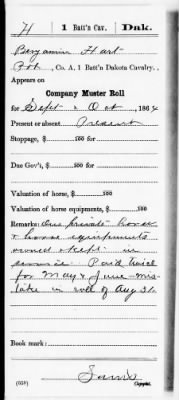 H | 1 Batt'n Cav. | Dak.
Benjamin Hart
Pvt, Co. A, 1 Batt'n Dakota Cavalry.
Appears on
Company Muster Roll
for Sept & Oct, 1864
Present or absent Present
Stoppage, $ 100 for
Due Gov't, $ 100 for
Valuation of horse, $ 100
Valuation of horse equipments, $ 100
Remarks: One private horse
& horse equipments
owned & kept in
service. Paid twice
for May & June mis-
take in roll of Aug 31.
Book mark:
(858)
Copyist.